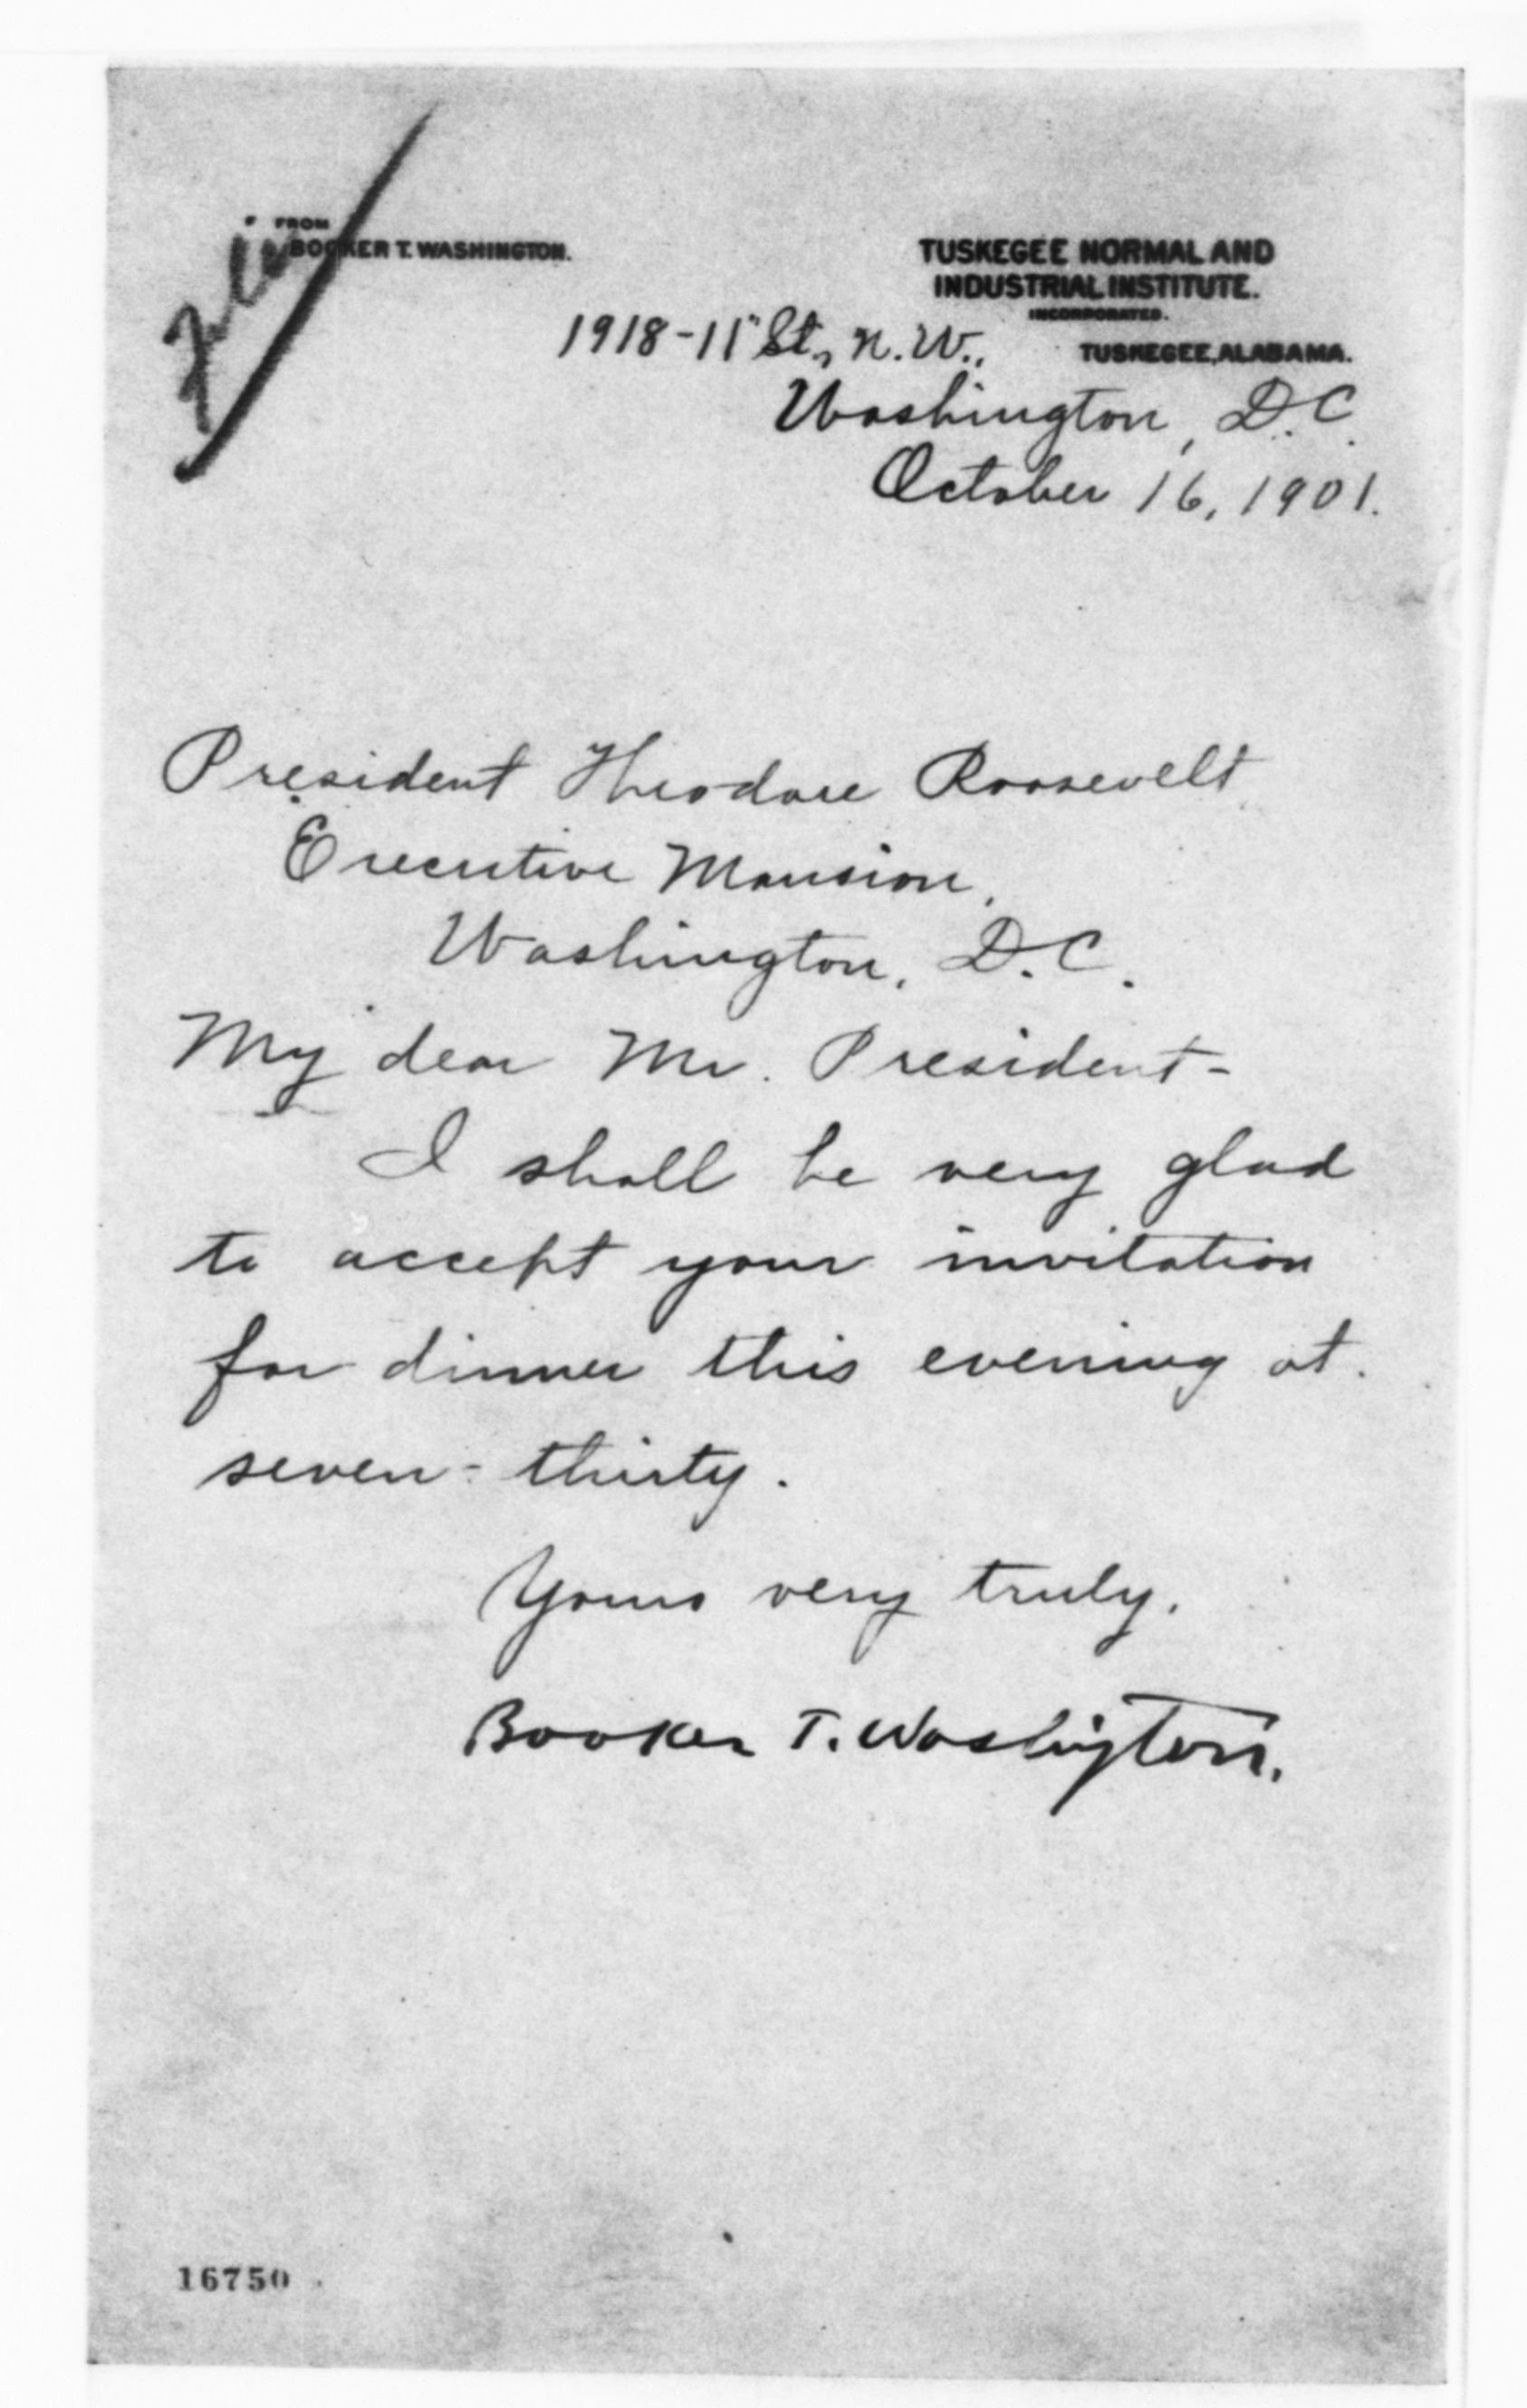 FROM
BOOKER T. WASHINGTON.
TUSKEGEE NORMAL AND
INDUSTRIAL INSTITUTE.
INCORPORATED.
TUSKEGEE, ALABAMA.
1918-11" St., N.W.,
Washington, D.C.
October 16, 1901.
President Theodore Roosevelt,
Executive Mansion,
Washington, D.C.
My dear Mr. President-
I shall be very glad
to accept your invitation
for dinner this evening at
seven-thirty.
Yours very truly,
Booker T. Washington.
16750